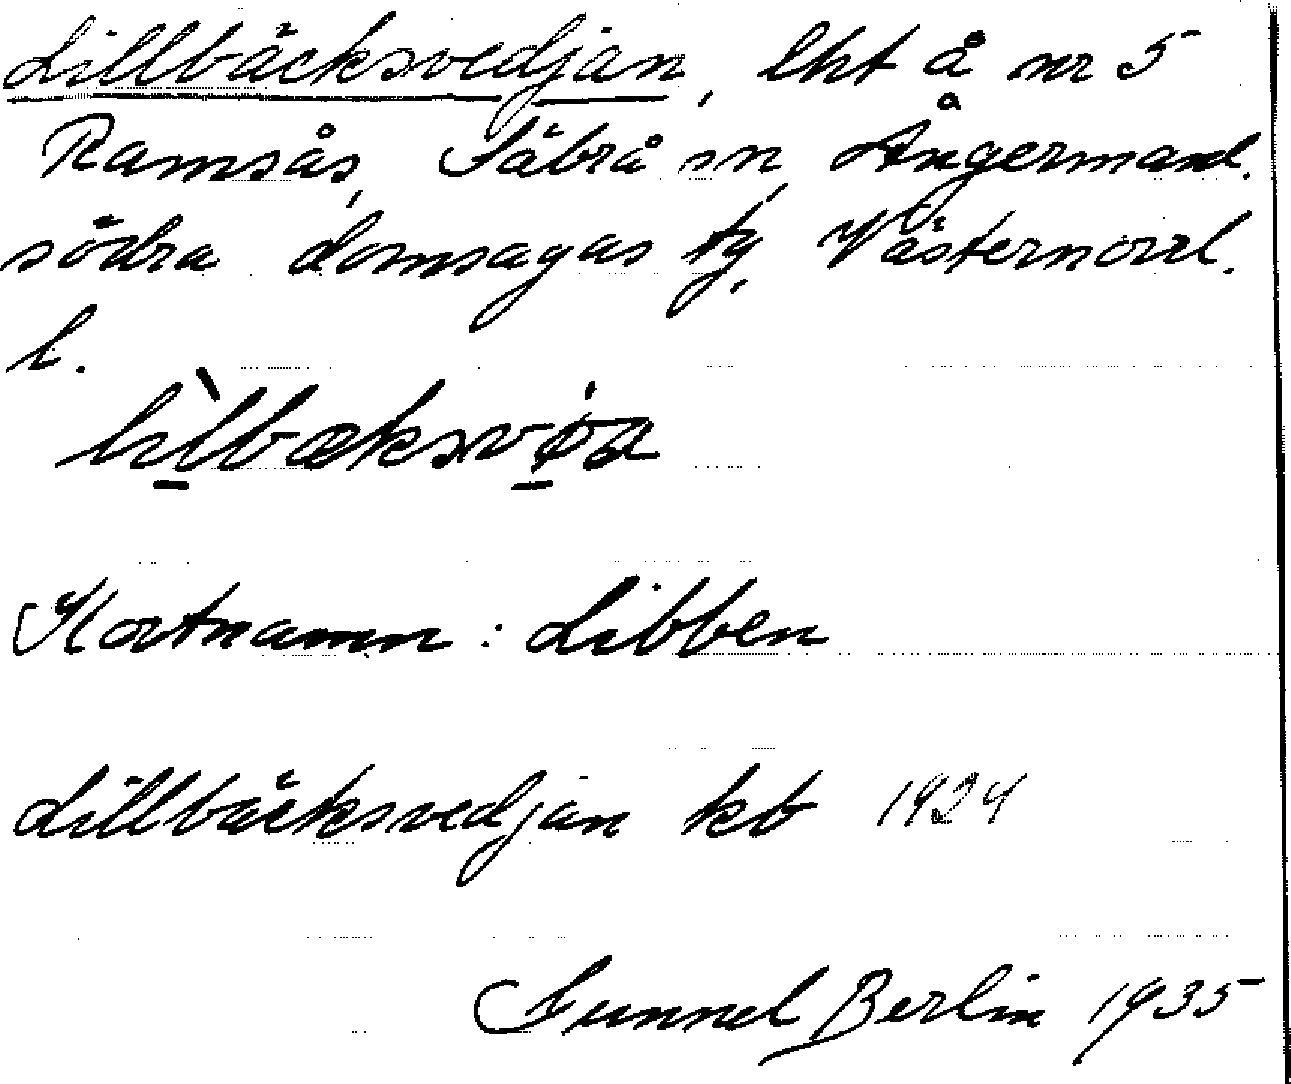 Lillbäcksvedjan, lht å nr 5
Ramsås, Säbrå sn, Ångermanl.
södra domsagas tg, Västernorrl.
l.
Kortnamn: Libben
Lillbäcksvedjan kb 1924
Gunnel Berlin 1935